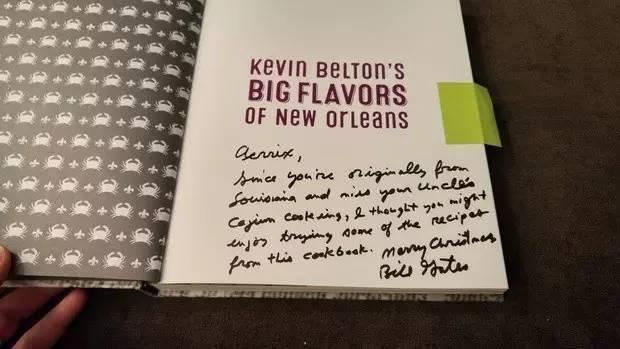 Kevin Belton's
BIG FLAVORS
OF New Orleans
Aerrix,
Since you're originally from
Louisiana and miss your Uncle's
Cajun cooking, I thought you might
enjoy trying some of the recipes
from this cookbook. Merry Christmas
Bill Gates